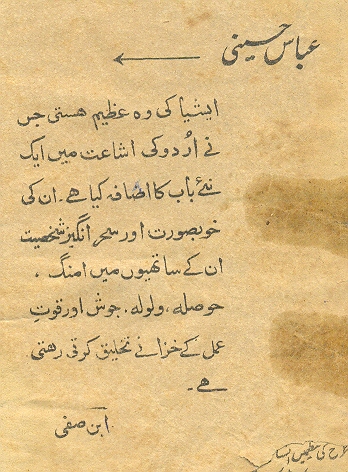 عباس حسینی
ایشیا کی وہ عظیم ھستی جس
نے اُردو کی اشاعت میں ایک
نئے باب کا اضافہ کیا ھے۔ ان کی
خوبصورت اور سحر انگیز شخصیت
ان کے ساتھیوں میں امنگ ،
حوصلہ ، ولولہ ، جوش اور قوتِ
عمل کے خزانے تخلیق کرتی رھتی
ھے۔
ابن صفی
طرح کی